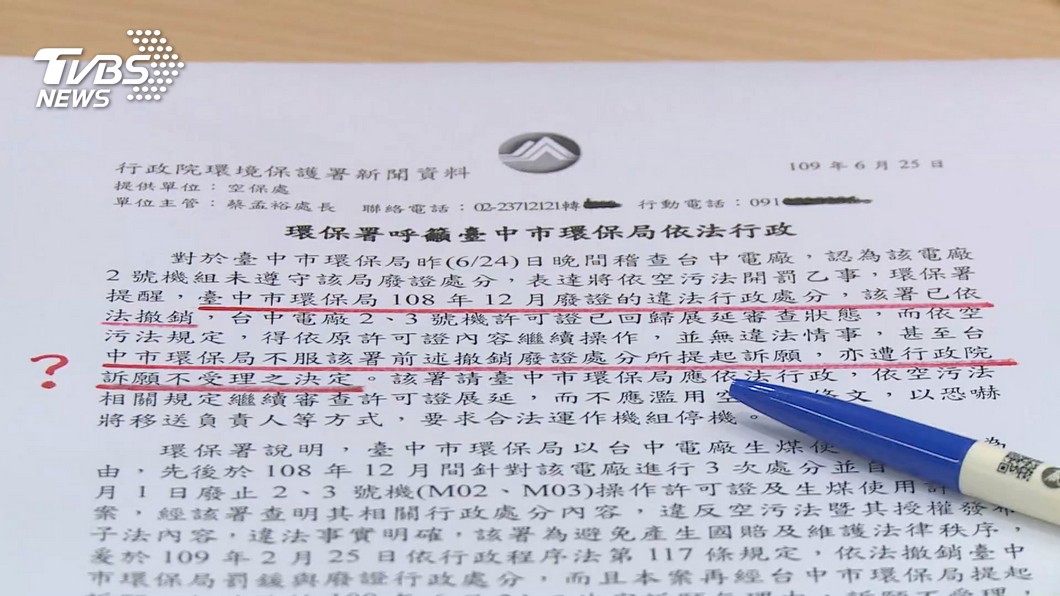 TVBS
NEWS
行政院環境保護署新聞資料
109年6月25日
提供單位：空保處
單位主管：蔡孟裕處長 聯絡電話：02-23712121轉 行動電話：091
環保署呼籲臺中市環保局依法行政
對於臺中市環保局昨(6/24)日晚間稽查台中電廠，認為該電廠
2號機組未遵守該局廢證處分，表達將依空污法開罰乙事，環保署
提醒，臺中市環保局108年12月廢證的違法行政處分，該署已依
法撤銷，台中電廠2、3號機許可證已回歸展延審查狀態，而依空
污法規定，得依原許可證內容繼續操作，並無違法情事，甚至台
中市環保局不服該署前述撤銷廢證處分所提起訴願，亦遭行政院
?
訴願不受理之決定。該署請臺中市環保局應依法行政，依空污法
相關規定繼續審查許可證展延，而不應濫用空 條文，以恐嚇
將移送負責人等方式，要求合法運作機組停機。
環保署說明，臺中市環保局以台中電廠生煤使 為
由，先後於108年12月間針對該電廠進行3次處分並自
月1日廢止2、3號機(M02、M03)操作許可證及生煤使用許
案，經該署查明其相關行政處分內容，違反空污法暨其授權發布
子法內容，違法事實明確，該署為避免產生國賠及維護法律秩序，
爰於109年2月25日依行政程序法第117條規定，依法撤銷臺中
市環保局罰鍰與廢證行政處分，而且本案再經台中市環保局提起